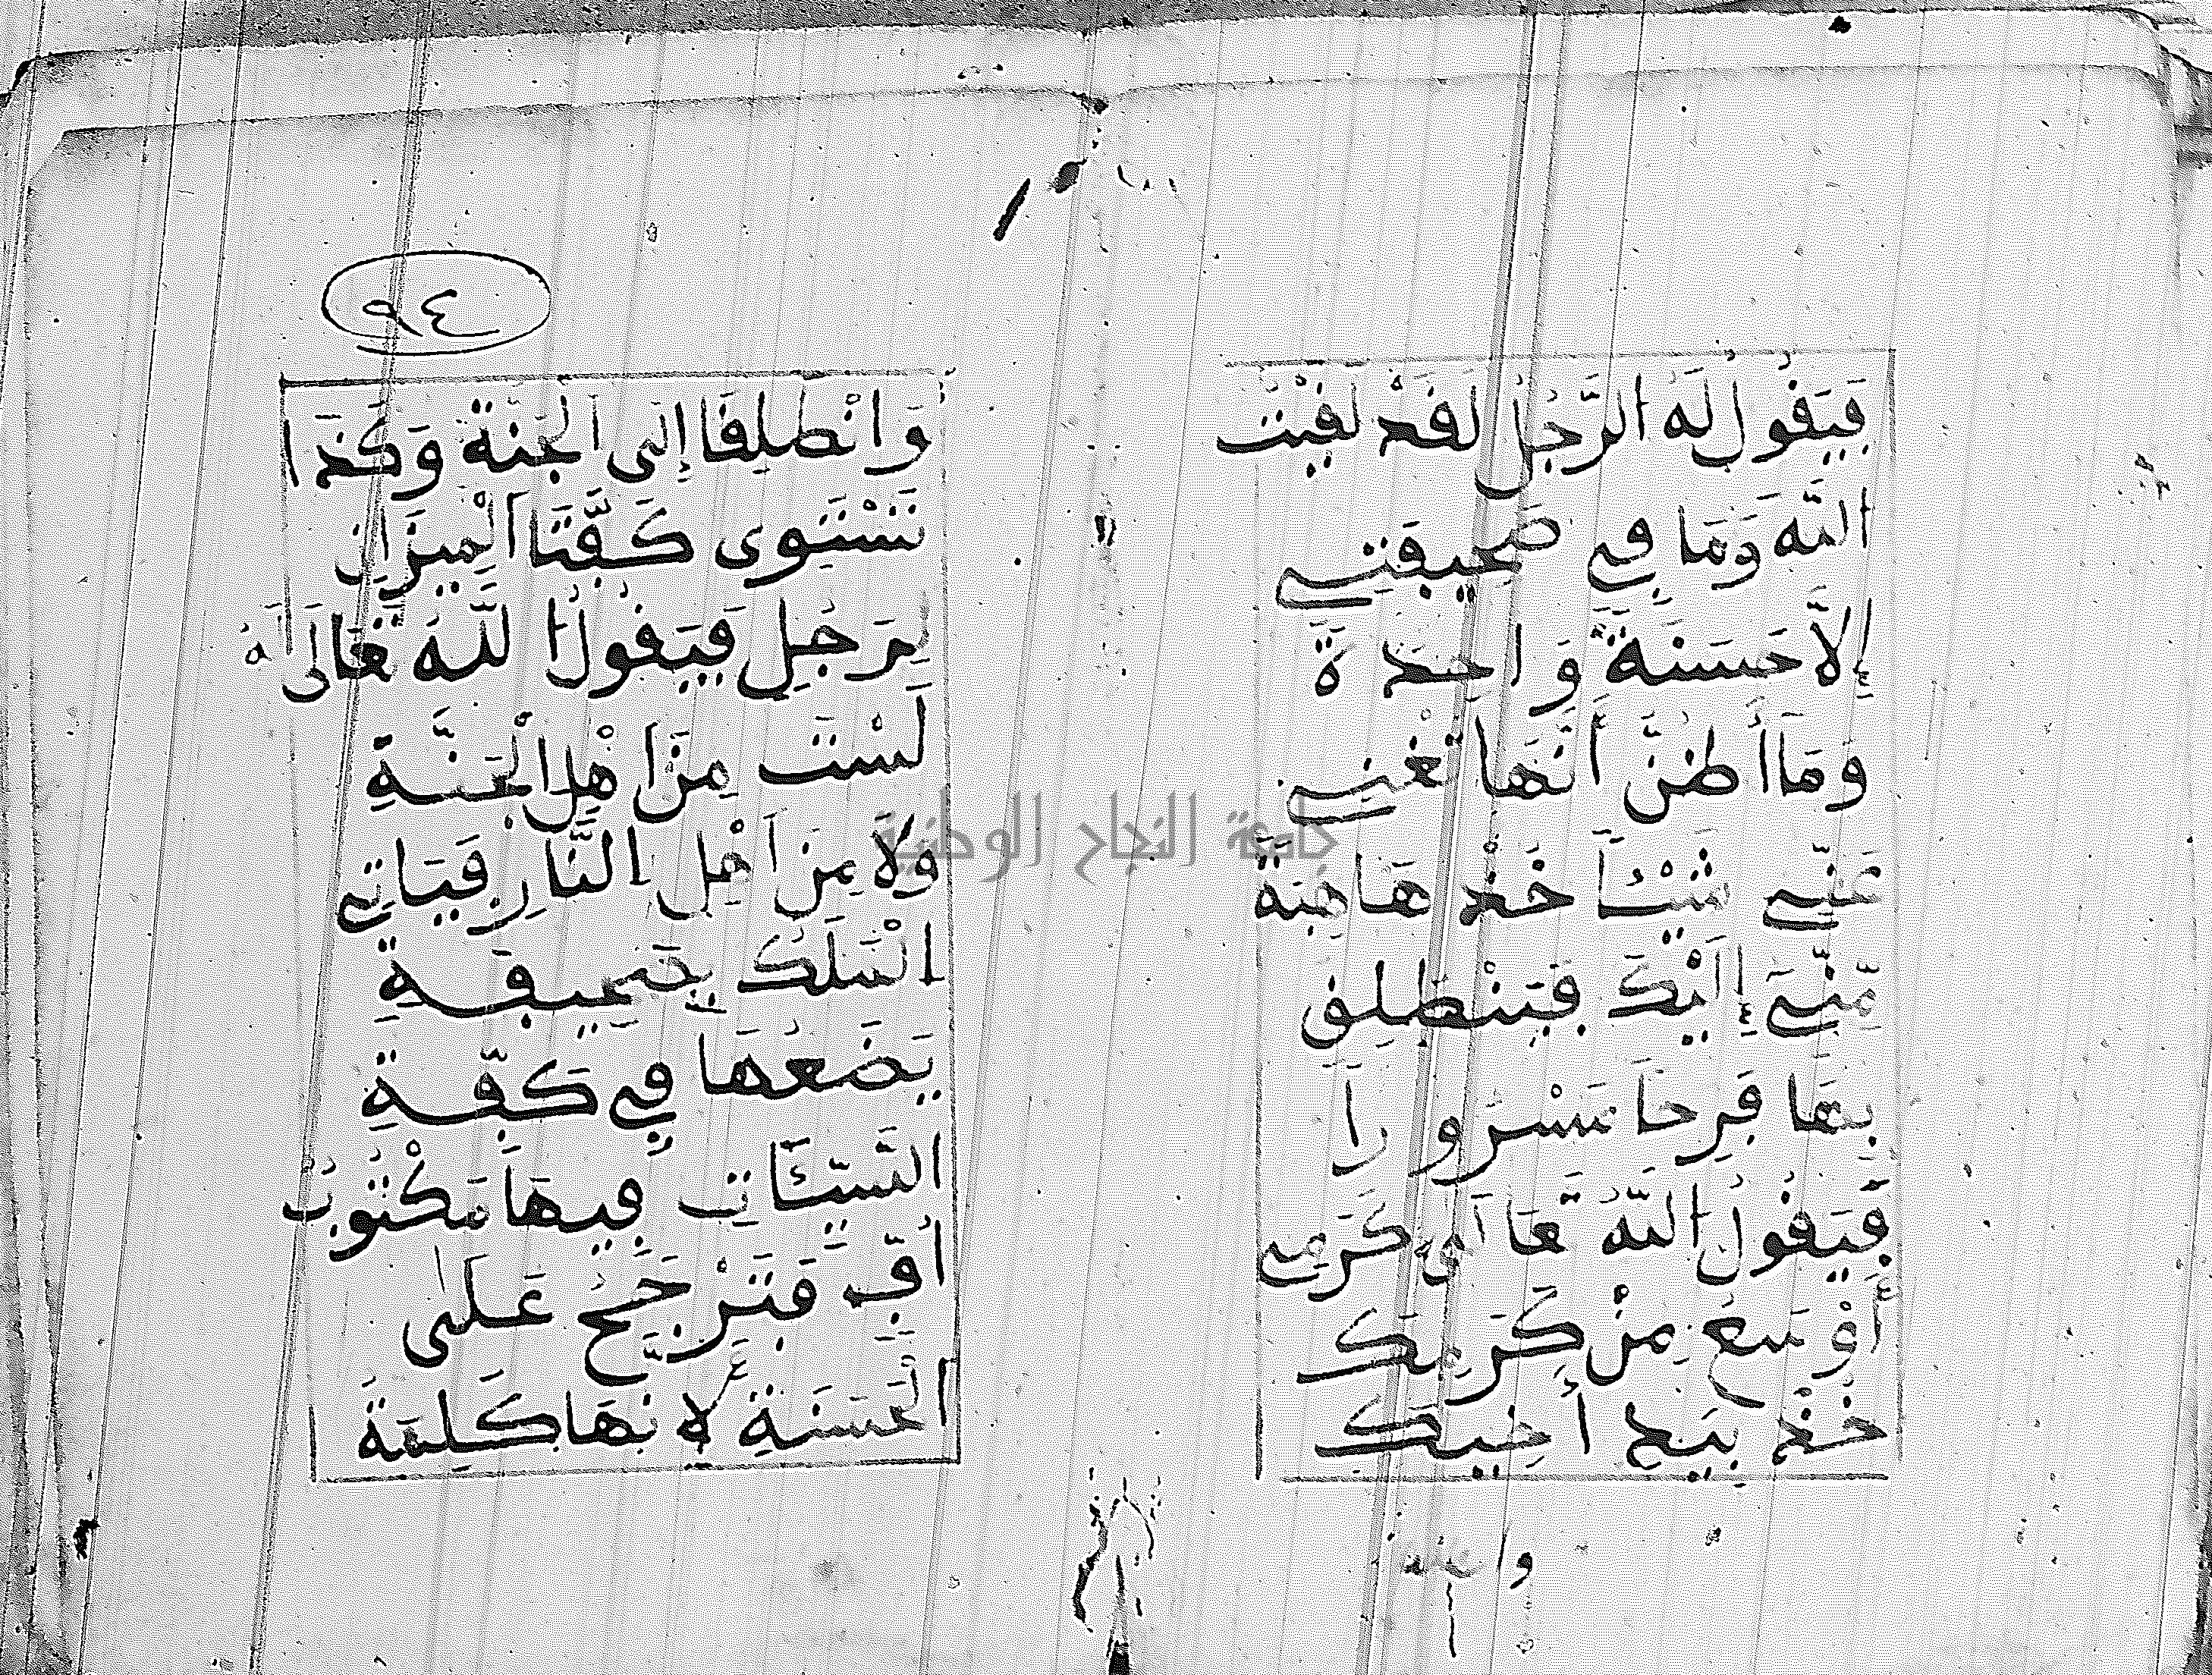 فَيَقُولُ لَهُ الرَّجُلُ لَقَدْ لَقِيْتُ
اللّٰهَ وَمَا فِي صَحِيفَتِي
إِلاَّ حَسَنَةٌ وَاحِدَةٌ
وَمَا أَظُنُّ أَنَّهَا تُغْنِي
عَنِّي شَيْئاً خُذْهَا هِبَةً
مِّنِّي إِلَيْكَ فَيَنْطَلِقُ
بِهَا فَرِحاً مَسْرُوراً
فَيَقُولُ اللّٰهُ تَعَالَى كَرَمِي
أَوْسَعُ مِنْ كَرَمِكَ
خُذْ بِيَدِ أَخِيكَ
٩٤
وَانْطَلِقَا إِلَى الْجَنَّةِ وَكَذَا
تَسْتَوِي كَفَّتَا الْمِيزَانِ
لِرَجُلٍ فَيَقُولُ اللّٰهُ تَعَالَى لَهُ
لَسْتَ مِنْ أَهْلِ الْجَنَّةِ
وَلاَ مِنْ أَهْلِ النَّارِ فَيَأْتِي
الْمَلَكُ بِصَحِيفَةٍ
يَضَعُهَا فِي كَفَّةِ
السَّيِّئَاتِ فِيهَا مَكْتُوبٌ
أُفٍّ فَتَرْجَحُ عَلَى
الْحَسَنَةِ لأَنَّهَا كَلِمَةُ
جامعة النجاح الوطنية